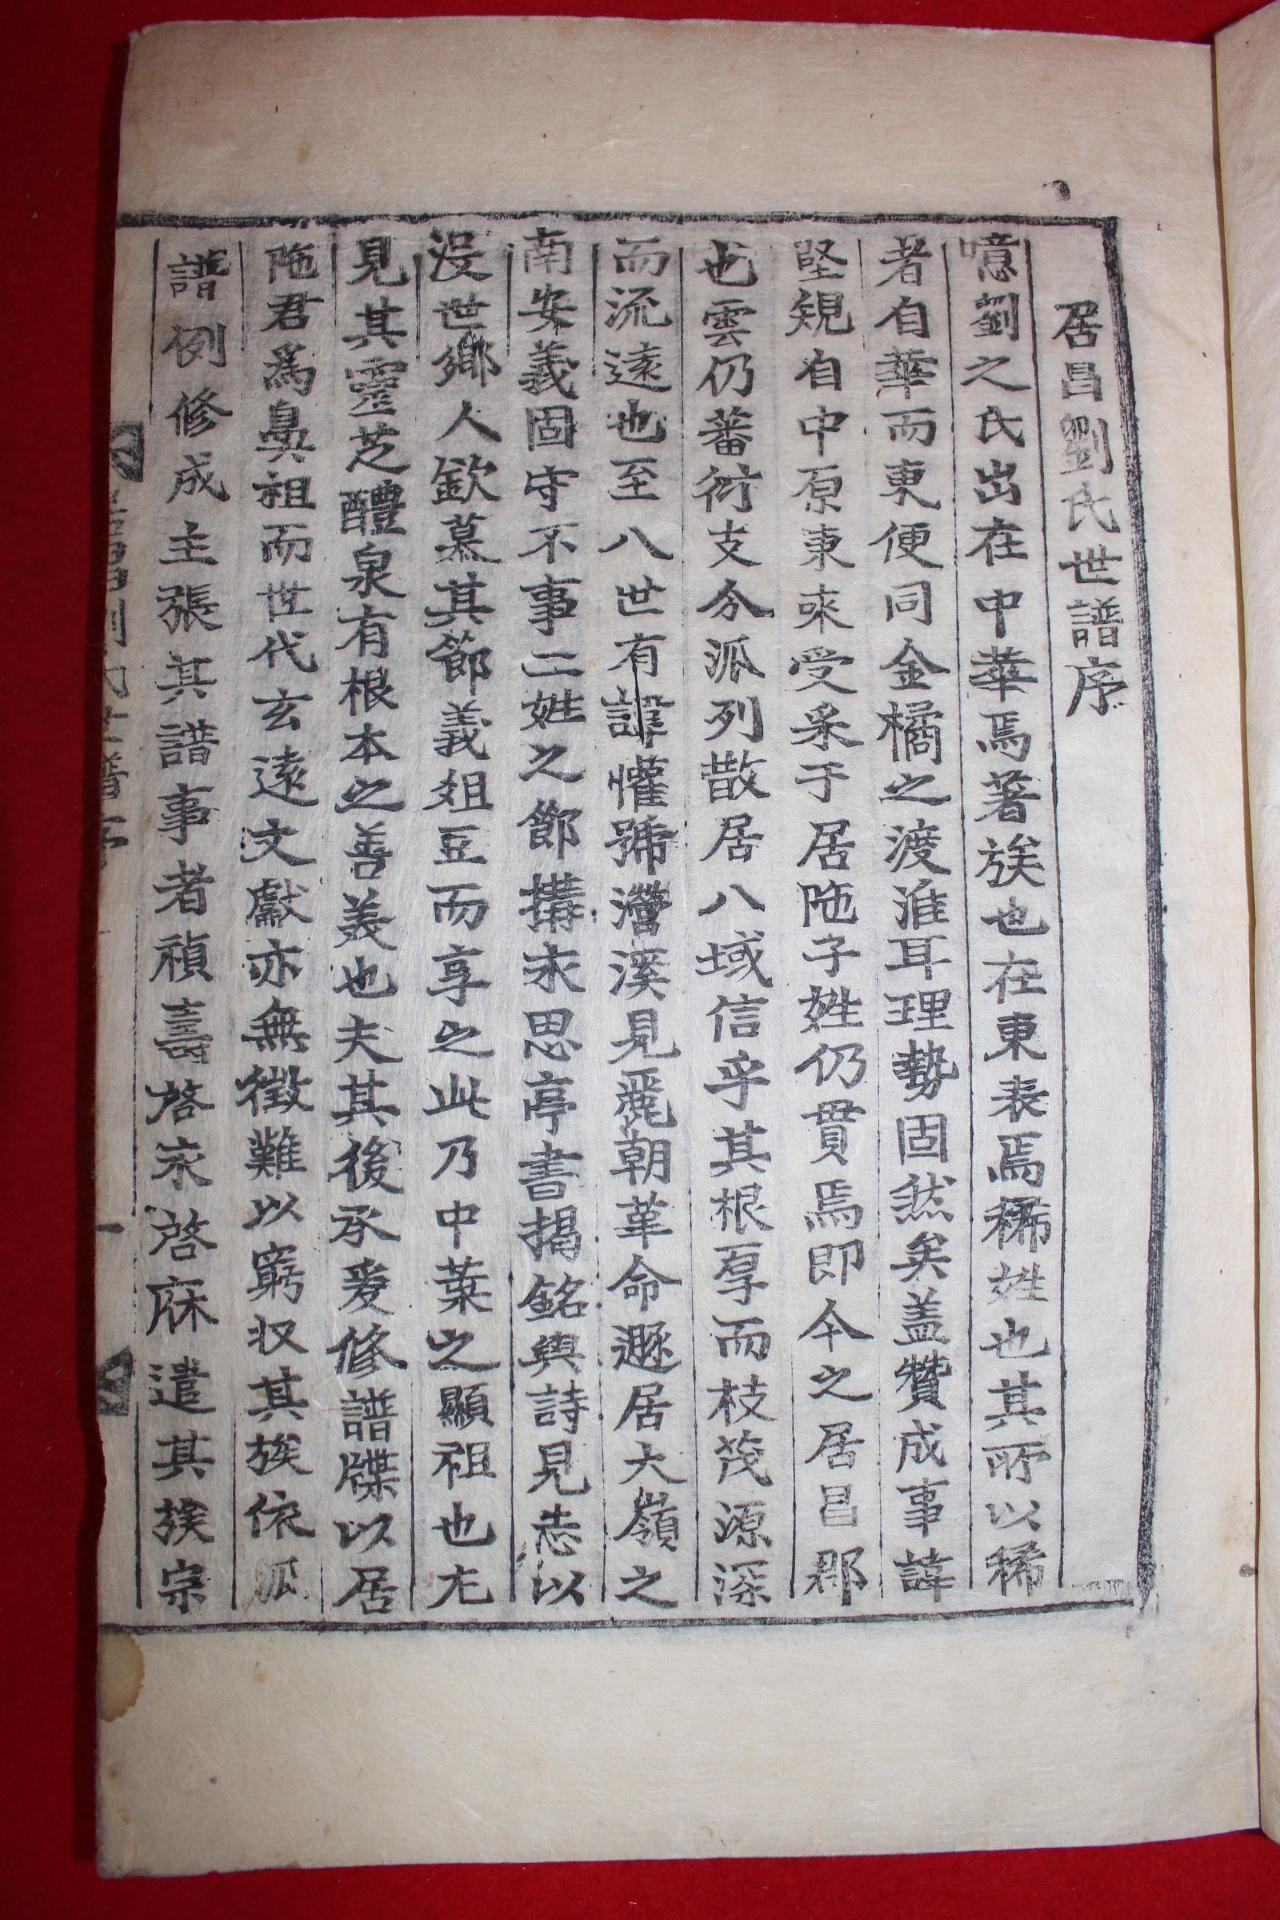 居昌劉氏世譜序
噫劉之氏出在中華焉著族也在東表焉稀姓也其所以稀
者自華而東便同金橘之渡淮耳理勢固然矣盖贊成事諱
堅規自中原東來受采于居陁子姓仍貫焉卽今之居昌郡
也雲仍蕃衍支分派列散居八域信乎其根厚而枝茂源深
而流遠也至八世有諱懽號瀯溪見麗朝革命遯居大嶺之
南安義固守不事二姓之節搆永思亭書揭銘與詩見志以
沒世鄕人欽慕其節義俎豆而享之此乃中葉之顯祖也尤
見其靈芝醴泉有根本之善美也夫其後承爰修譜牒以居
陁君爲鼻祖而世代玄遠文獻亦無徵難以窮収其族依派
譜例修成主張其譜事者禎壽啓永啓庥遣其族宗
居昌劉氏世譜序 一